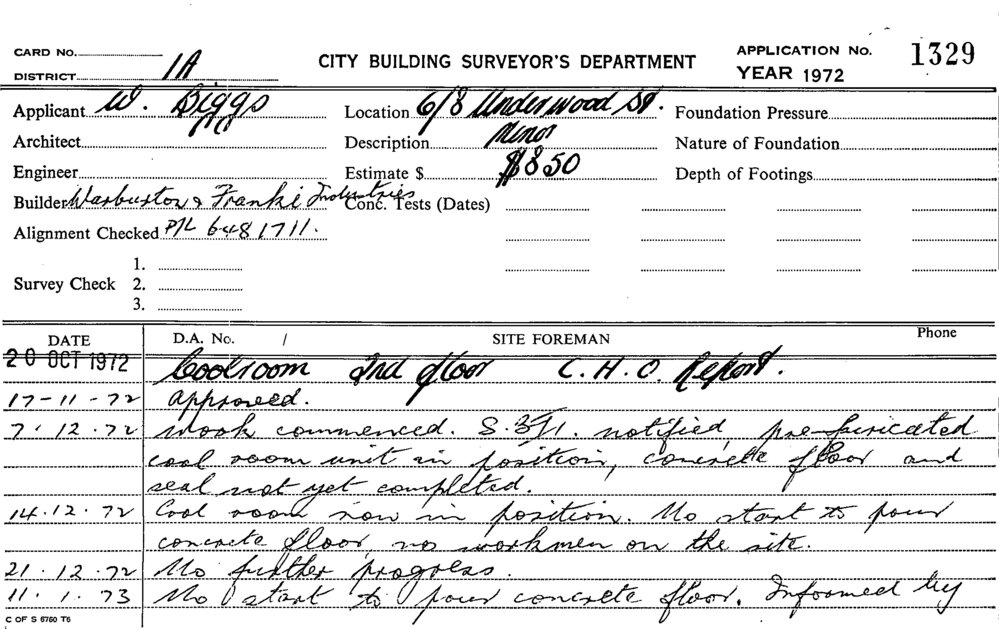 CARD No.
DISTRICT 1A
CITY BUILDING SURVEYOR'S DEPARTMENT
APPLICATION No. 1329
YEAR 1972
Applicant W. Biggs
Location 6/8 Underwood St.
Foundation Pressure
Architect
Description Minor
Nature of Foundation
Engineer
Estimate $ $850
Depth of Footings
Builder Warburton & Franki Industries
Conc. Tests (Dates)
Alignment Checked P/L 6481711.
Survey Check
1.
2.
3.
DATE
D.A. No. /
SITE FOREMAN
Phone
20 OCT 1972 Coolroom 2nd floor C.H.O. Report.
17-11-72 Approved.
7.12.72 Work commenced. notified, pre-fabricated
cool room unit in position, concrete floor and
seal not yet completed.
14.12.72 Cool room now in position. No start to pour
concrete floor, no workmen on the site.
21.12.72 No further progress.
11.1.73 No start to pour concrete floor. Informed by
C OF S 6760 T6